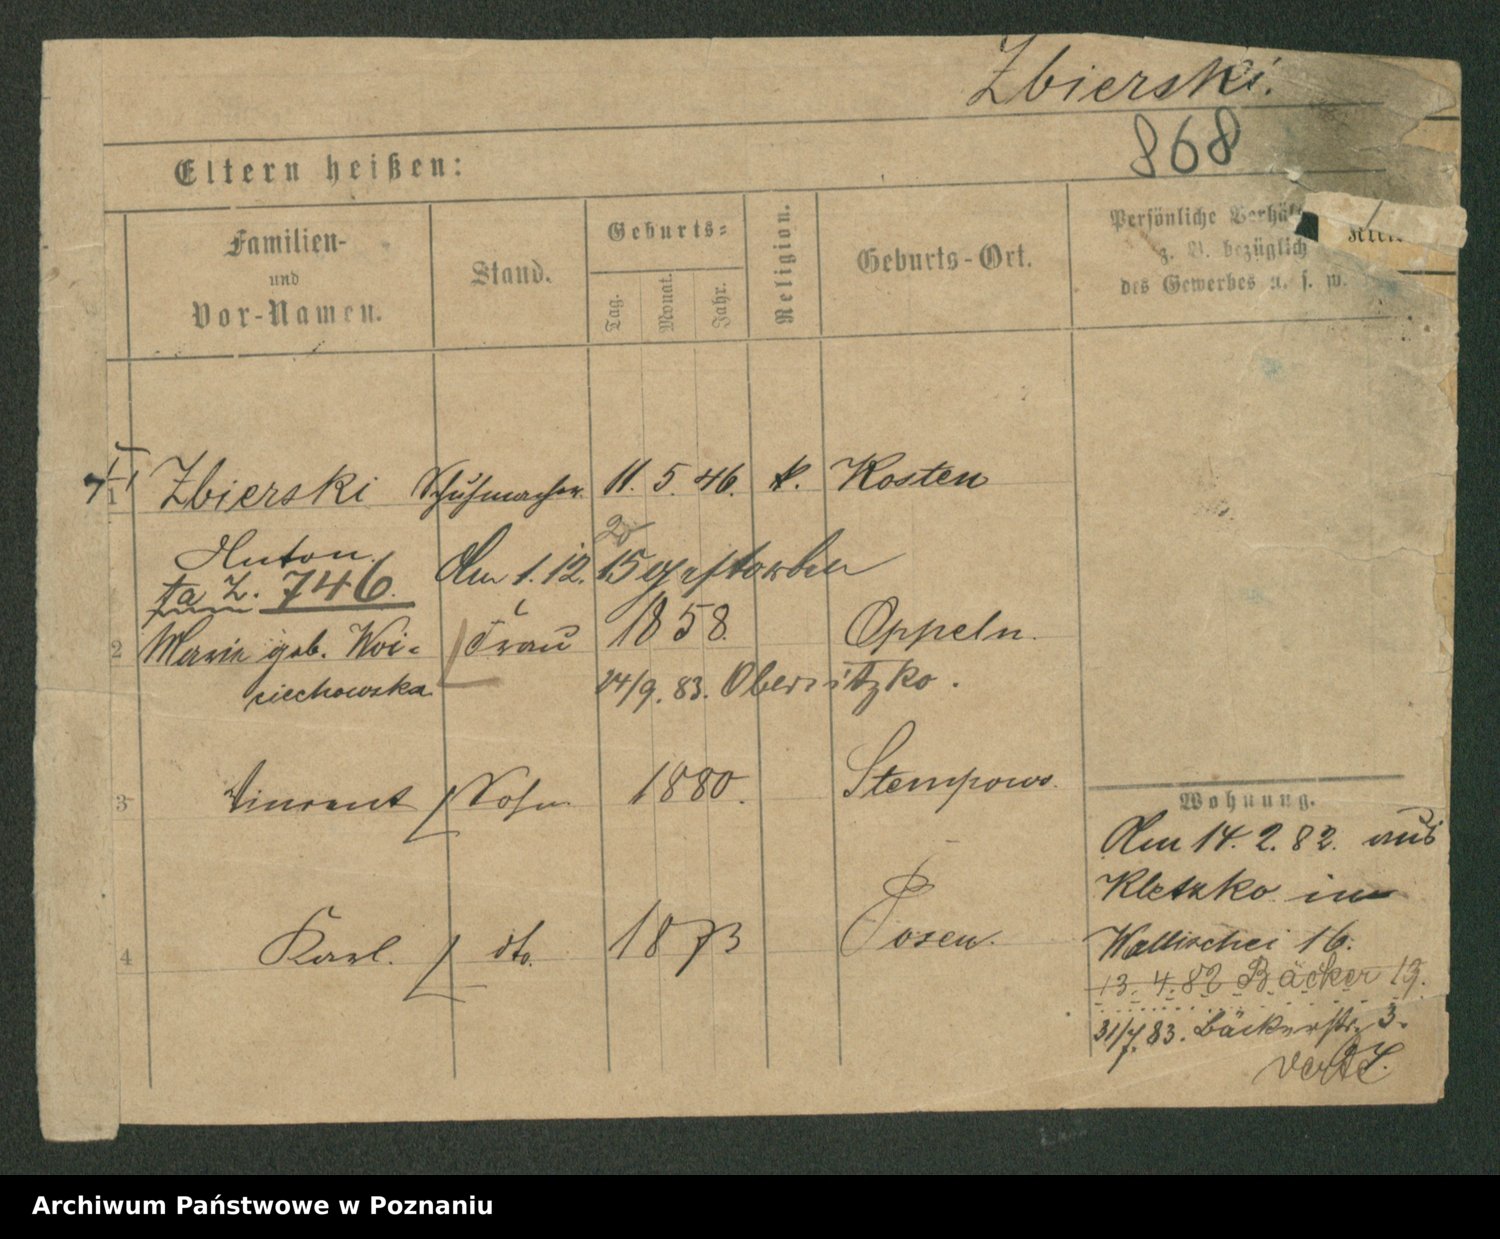 Zbierski.
868
Eltern heißen:
Familien-
und
Vor-Namen.
Stand.
Geburts-
Tag.
Monat.
Jahr.
Religion.
Geburts-Ort.
Persönliche Verhäl
z. B. bezüglich
des Gewerbes u. s. w.
1 Zbierski Schuhmacher 11. 5. 46. k. Kosten
Anton. Am 1. 12. 15 gestorben
20
Z. 746.
2 Marie geb. Woi- Frau 1858. Oppeln.
ciechowska 24/9. 83. Obersitzko.
3 Vincent Sohn 1880. Stempowo.
4 Karl. dto. 1873 Posen.
Wohnung.
Am 14. 2. 82. aus
Kletzko in
Wallischei 16.
13. 4. 82 Bäcker 13.
31/7. 83. Bäckerstr. 3.
Archiwum Państwowe w Poznaniu